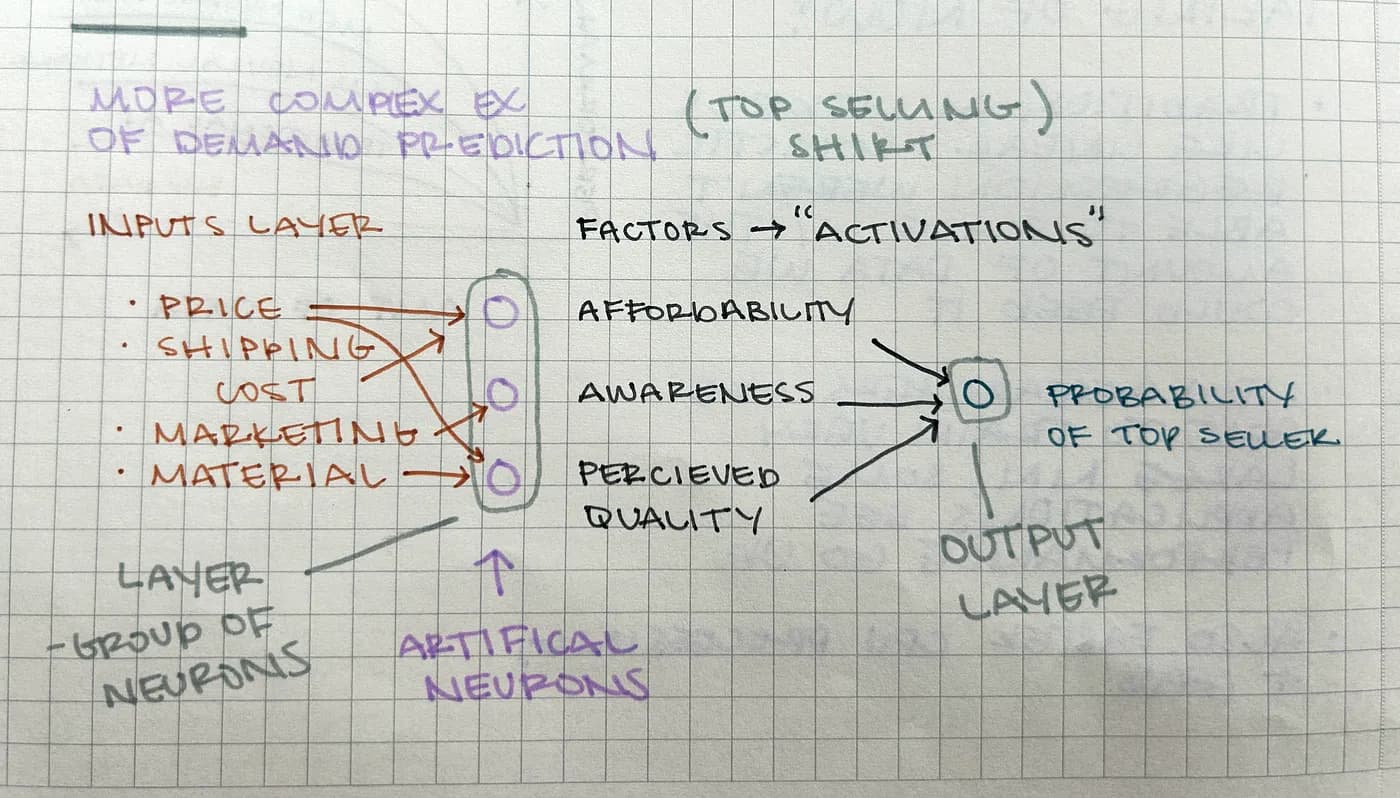 MORE COMPLEX EX
OF DEMAND PREDICTION
(TOP SELLING)
SHIRT
INPUTS LAYER
FACTORS → "ACTIVATIONS"
· PRICE
· SHIPPING
COST
· MARKETING
· MATERIAL
AFFORDABILITY
AWARENESS
PERCIEVED
QUALITY
PROBABILITY
OF TOP SELLER
LAYER
-GROUP OF
NEURONS
ARTIFICAL
NEURONS
OUTPUT
LAYER